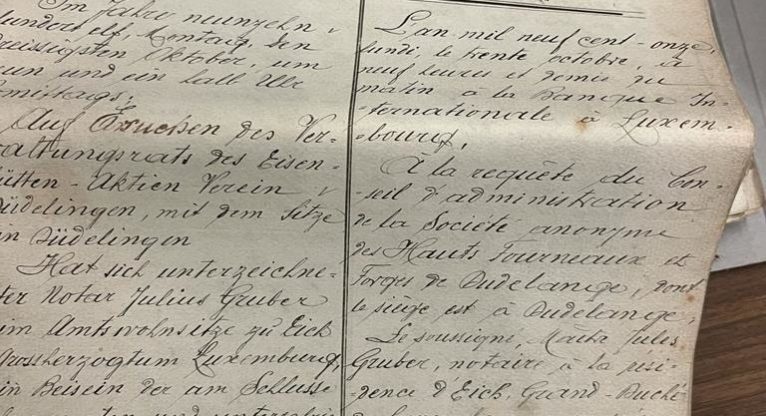 Im Jahre neunzehn
hundert elf, Montag, den
dreissigsten Oktober, um
neun und ein halb Uhr
Vormittags.
Auf Ersuchen des Ver-
waltungsrats des Eisen-
hütten-Aktien Verein
Düdelingen, mit dem Sitze
in Düdelingen
Hat sich unterzeichne-
ter Notar Julius Gruber
im Amtswohnsitze zu Eich
Grossherzogtum Luxemburg,
in Beisein der am Schlusse
L'an mil neuf cent-onze,
lundi, le trente octobre, à
neuf heures et demie du
matin à la Banque In-
-ternationale à Luxem-
-bourg,
À la requête du Con-
-seil d'administration
de la Société anonyme
des Hauts Fourneaux et
Forges de Dudelange, dont
le siège est à Dudelange,
Le soussigné, Maître Jules
Gruber, notaire à la rési-
-dence d'Eich, Grand-Duché